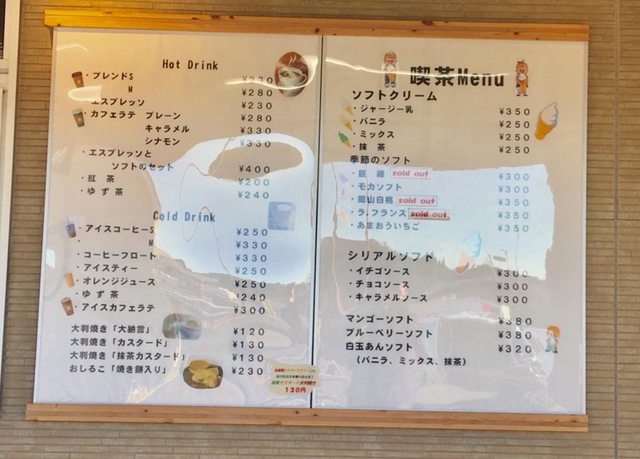 Hot Drink
・ブレンドS ¥230
M ¥280
・エスプレッソ ¥230
・カフェラテ プレーン ¥280
キャラメル ¥330
シナモン ¥330
・エスプレッソと
ソフトのセット ¥400
・紅 茶 ¥200
・ゆ ず 茶 ¥240
Cold Drink
・アイスコーヒーS ¥250
・ M ¥330
・コーヒーフロート ¥330
・アイスティー ¥250
・オレンジジュース ¥250
・ゆ ず 茶 ¥240
・アイスカフェラテ ¥300
大判焼き「大納言」 ¥120
大判焼き「カスタード」 ¥130
大判焼き「抹茶カスタード」 ¥130
おしるこ「焼き餅入り」 ¥230
130円
喫茶Menu
ソフトクリーム
・ジャージー乳 ¥350
・バニラ ¥250
・ミックス ¥250
・抹 茶 ¥250
季節のソフト
sold out ¥300
・モカソフト ¥300
・岡山白桃 sold out ¥350
・ラ・フランス sold out ¥350
・あまおういちご ¥350
シリアルソフト
・イチゴソース ¥300
・チョコソース ¥300
・キャラメルソース ¥300
マンゴーソフト ¥380
ブルーベリーソフト ¥380
白玉あんソフト ¥320
（バニラ、ミックス、抹茶）